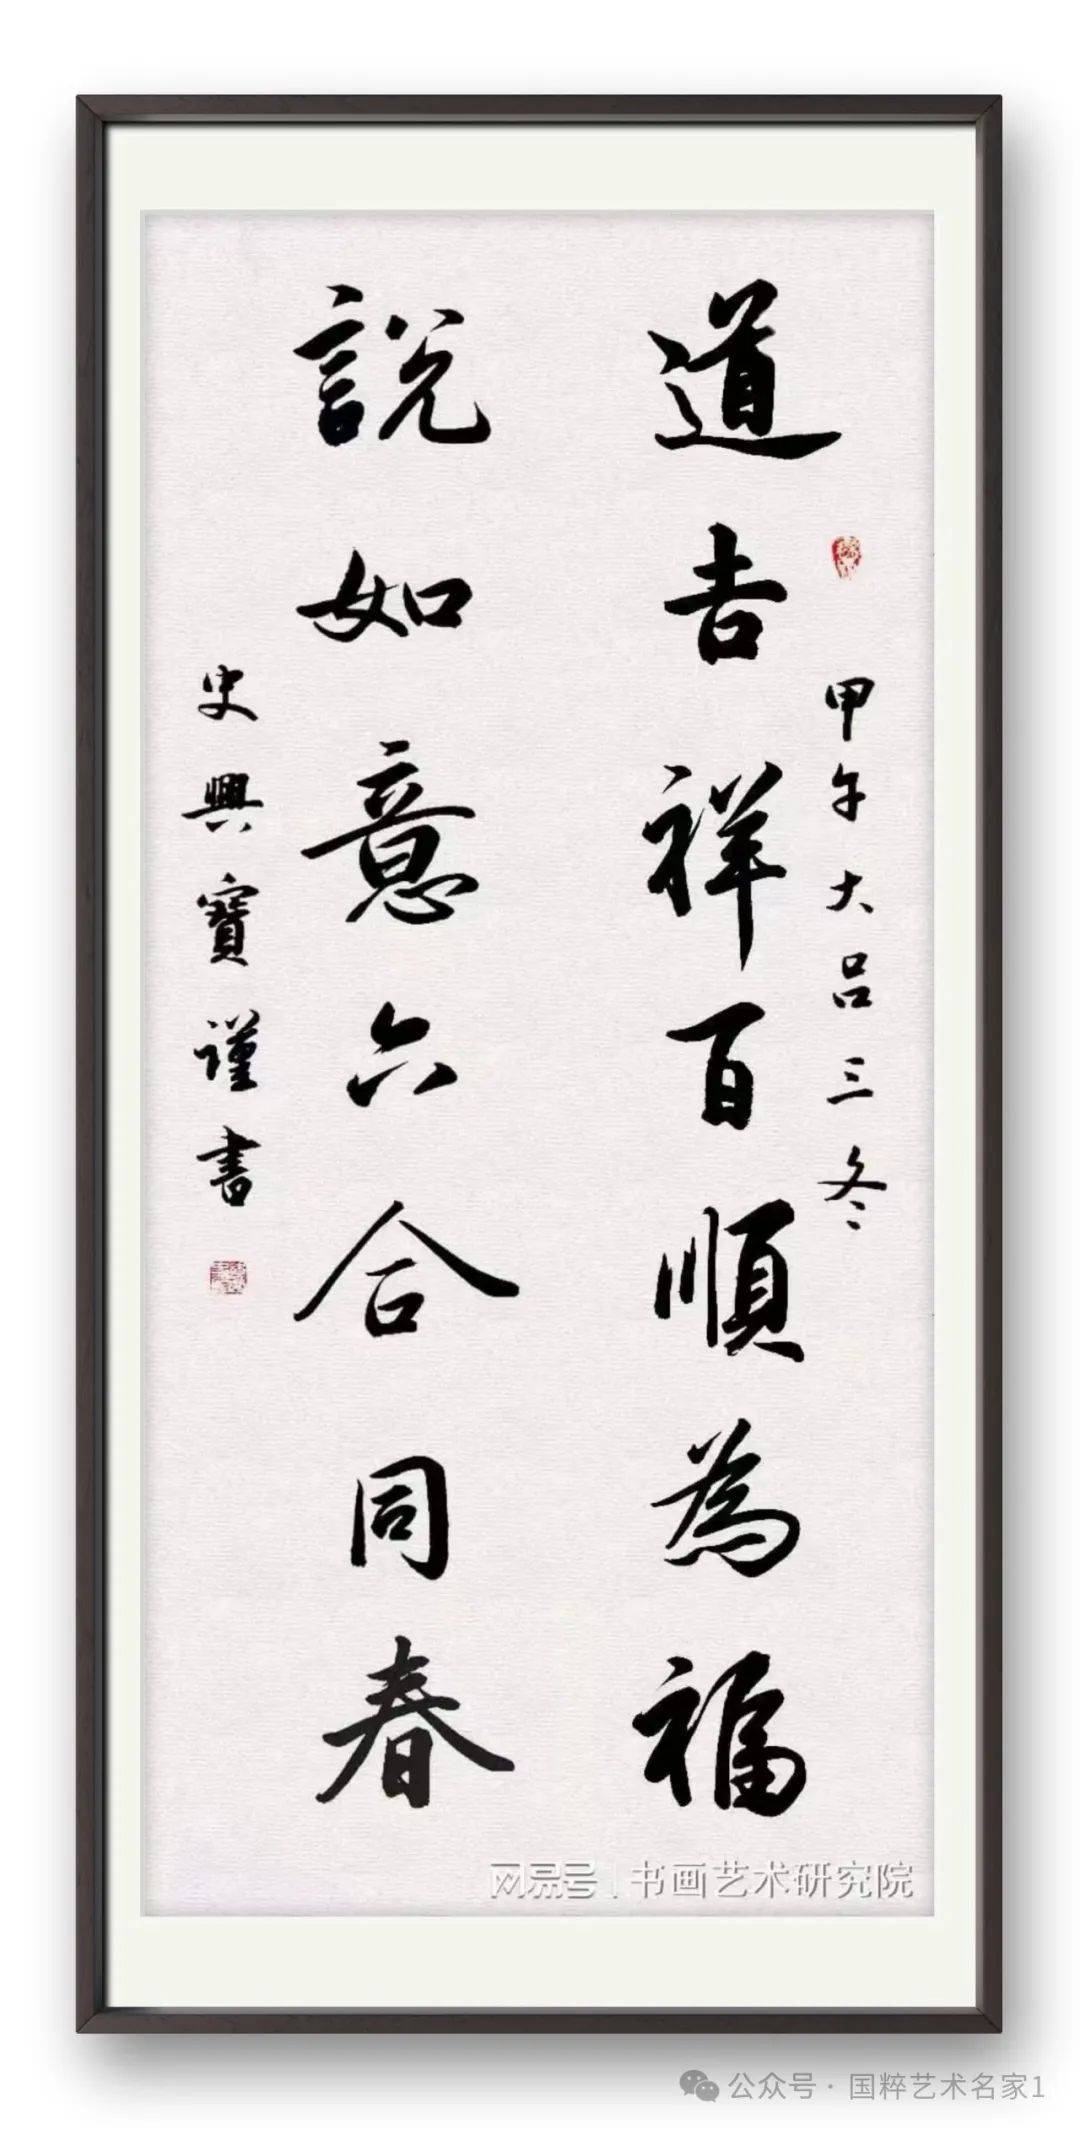 道吉祥百順為福
甲午大吕三冬
說如意六合同春
史興寶謹書
网易号 | 书画艺术研究院
公众号 · 国粹艺术名家1